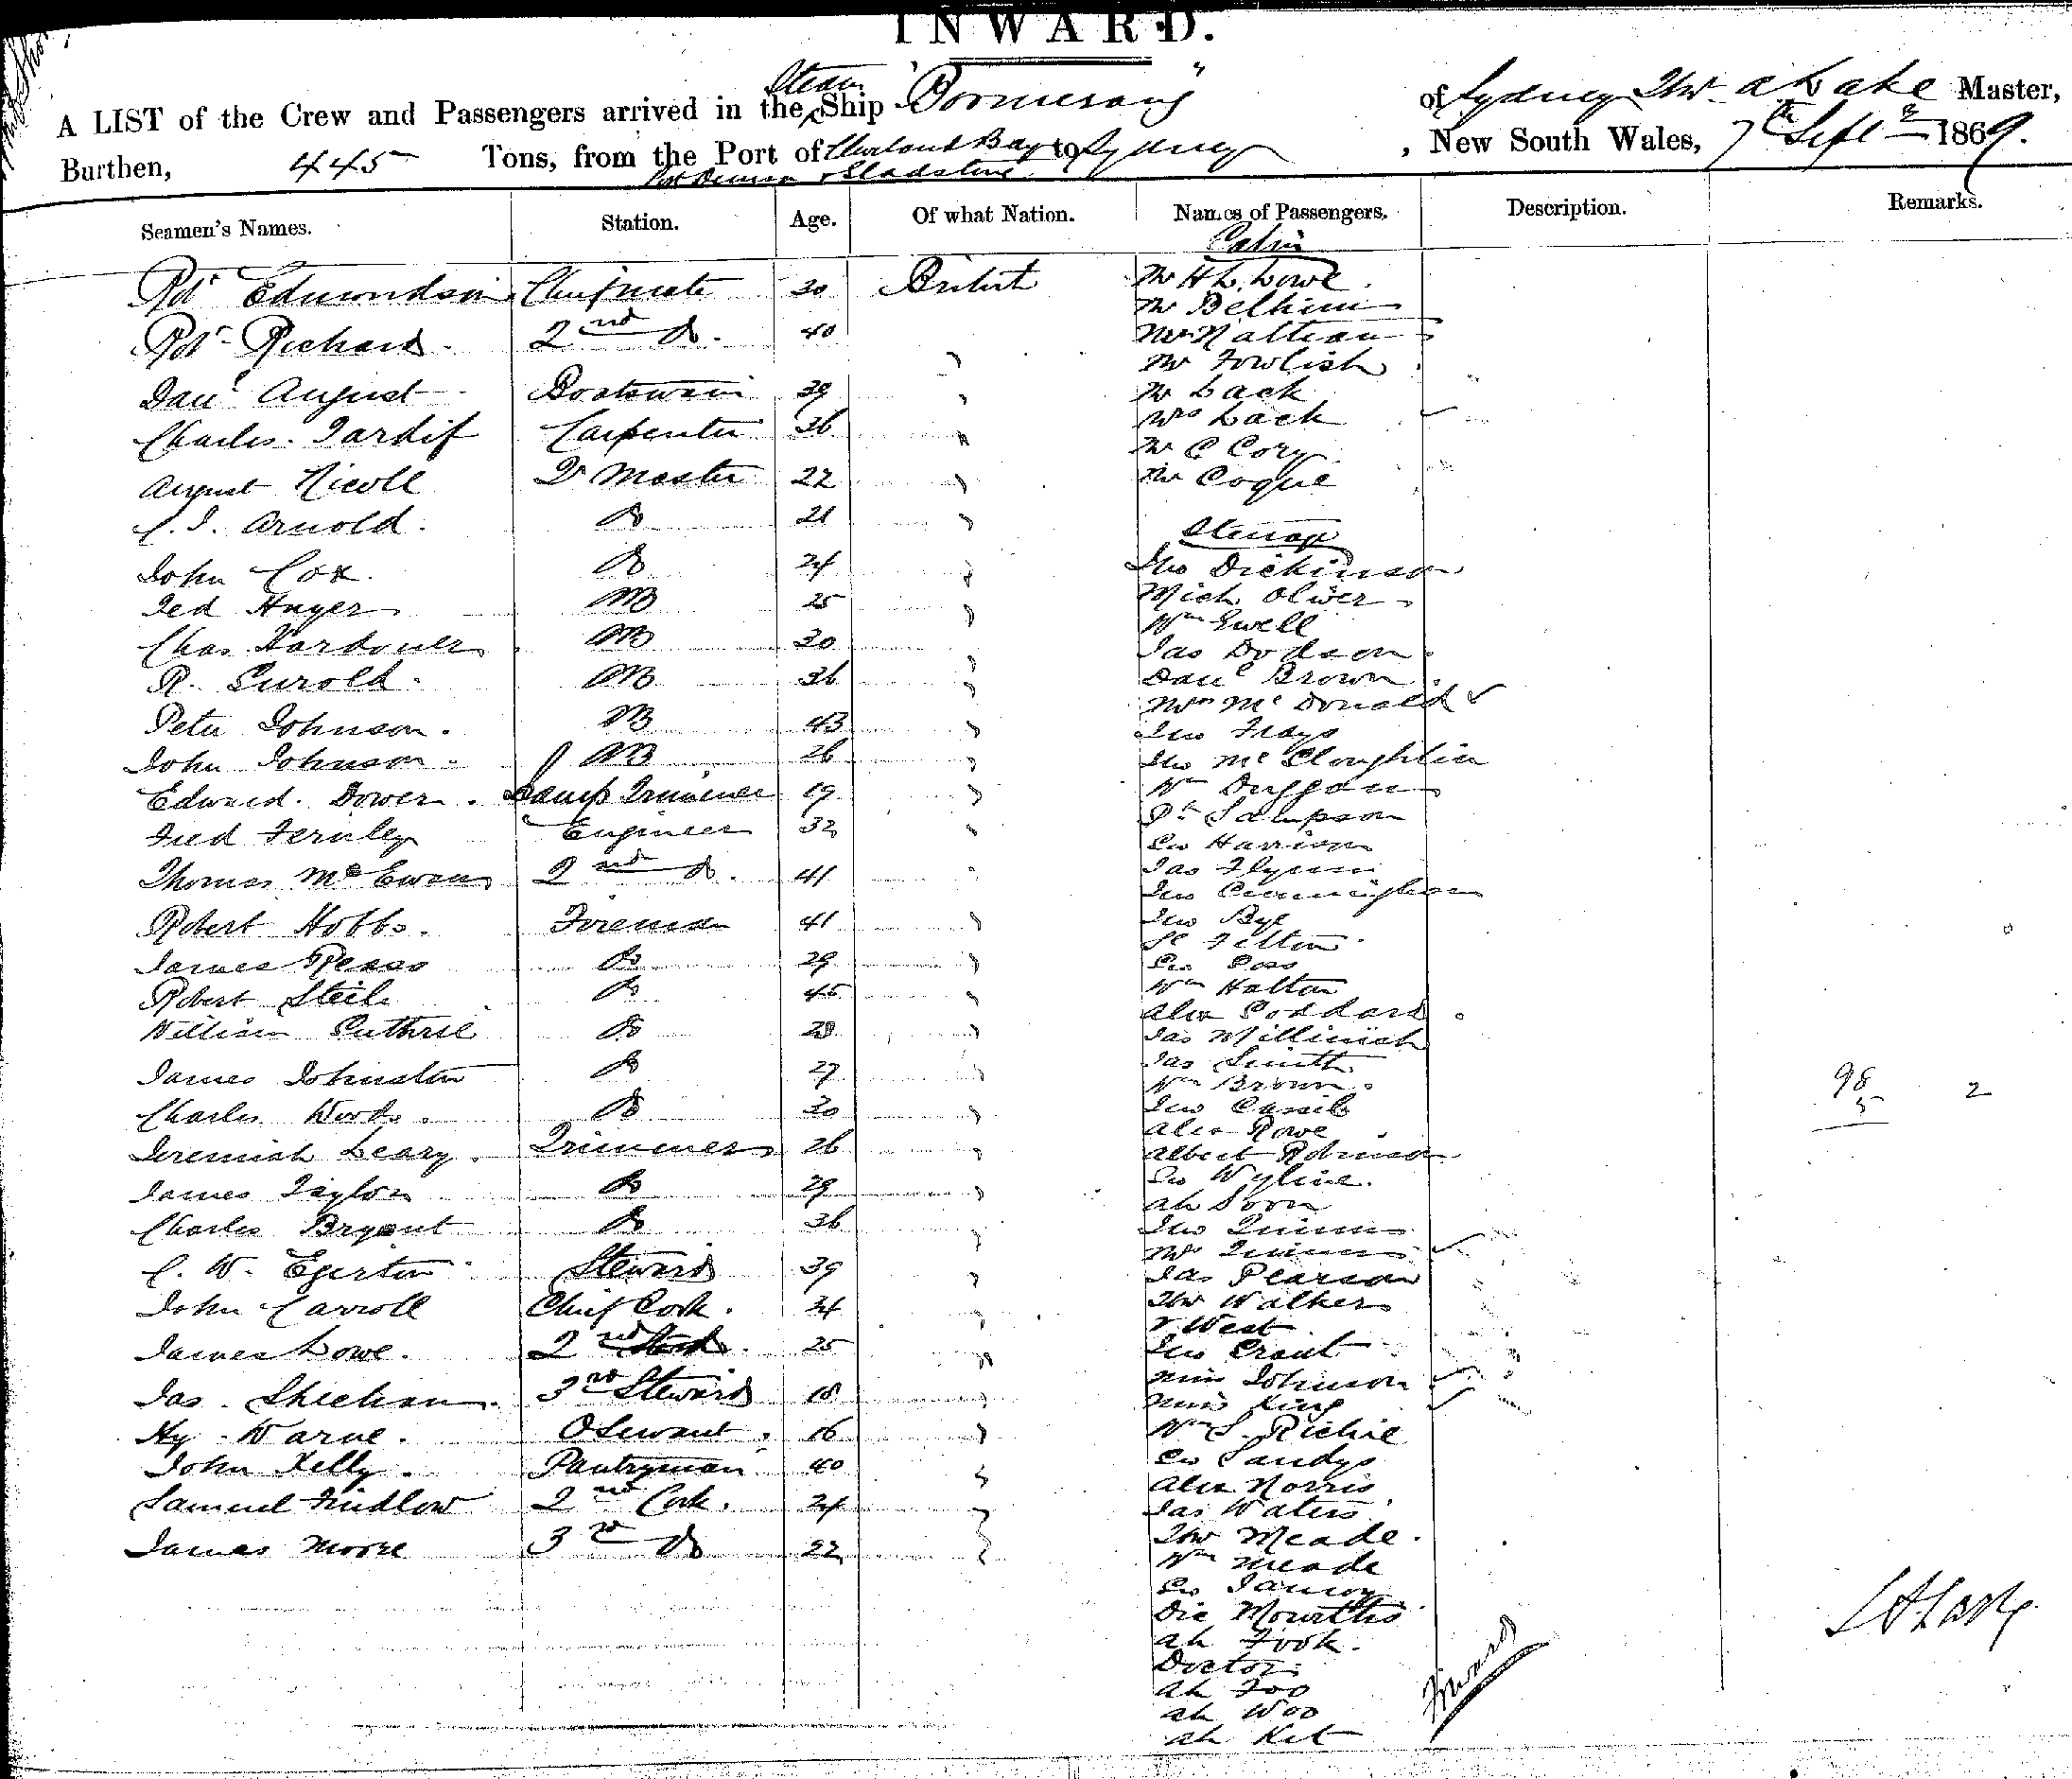 INWARD.
A LIST of the Crew and Passengers arrived in the Steam Ship "Boomerang" of Sydney Thos A Lake Master,
Burthen, 445 Tons, from the Port of Cleveland Bay to Sydney, New South Wales, 7th Septr 1869.
Port Denison & Gladstone
Seamen's Names. Station. Age. Of what Nation. Names of Passengers. Description. Remarks.
Cabin
Robt Edmondson Chief mate 30 British Mr H L. Lowe
Mr
Robt Richard 2nd Do. 40
Mr Fowlish
Danl August Boatswain 39 Mr Lack
Mrs Lack
Charles Tardif Carpenter 36 Mr C Cory
August Nicoll Qr Master 22 Mr Coque
C. J. Arnold Do 21
Steerage
John Cox Do 24 Jno Dickinson
Ted Hayer AB 25 Mich Oliver
Wm Ewell
Chas AB 30 Jas Dodson
R. AB 36 Danl Brown
Mrs McDonald
Peter Johnson AB 43 Jno Frays
John Johnson AB 26 Jno McCloughlin
Edward Dower Lamp Trimmer 19 Wm Duggan
Sampson
Fred Fernley Engineer 32 Geo Harrison
Thomas McEwan 2nd Do. 41 Jas Flynn
Jno Cunningham
Robert Hobbs Foreman 41 Jno Bye
Felton
James Do 29 Geo
Robert Steele Do 45 Wm Hatton
Alex Goddard
William Guthrie Do Jas
James Johnston Do 27 Jas Smith
Wm Brown
Charles Woods Do 30 Jno
Alex Rowe
Jeremiah Leary Trimmer 26 Albert Robinson
James Taylor Do 29 Geo Wyline
Ah
Charles Bryant Do 36 Jno Quinn
Mrs Quinn
C. W. Egerton Steward 39 Jas Pearson
John Carroll Chief Cook 34 Thos Walker
West
James Lowe 2nd 25 Jno Grant
Jas. Sheehan 3rd Steward 18 Miss Johnson
Miss King
Hy Warne O Servant 16 Wm S. Richie
John Kelly Pantryman 40 Geo Sandys
Alex Norris
Samuel Findlow 2nd Cook 24 Jas Waters
James Moore 3rd Do 22 Thos Meade
Wm Meade
Geo
Ah Fook
Doctor
Ah Foo
Ah Woo
Ah Kit
98 2
5